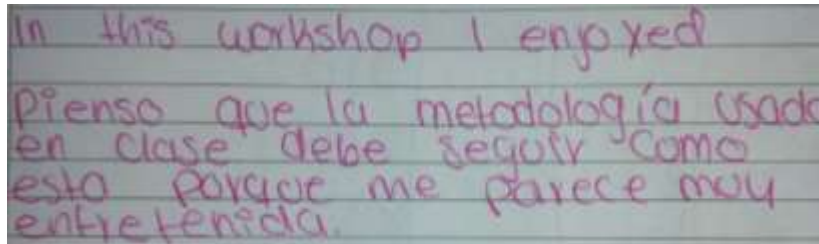 In this workshop I enjoyed
Pienso que la metodología usada
en clase debe seguir como
esta porque me parece muy
entretenida.